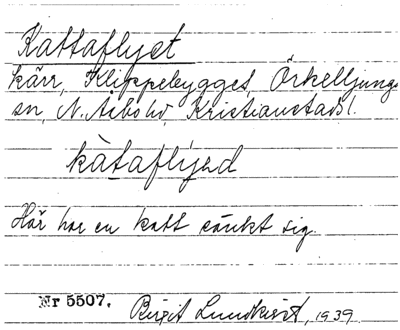 Kattaflyet
kärr, Klippebygget, Örkelljungs
sn, N. Åsbo hd, Kristianstads l.
kàtaflyed
Här har en katt sänkt sig.
Nr 5507. Birgit Lundkvist, 1939